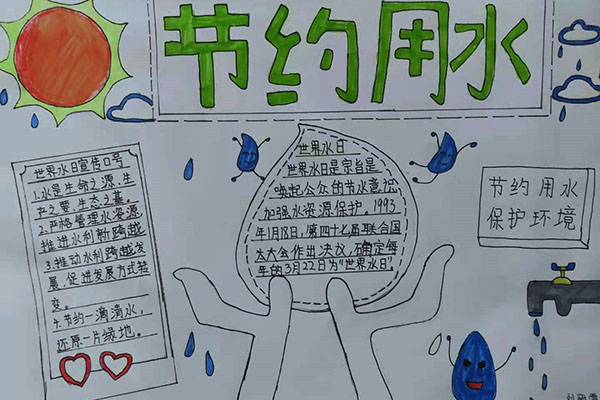 节约用水
世界水日宣传口号
1.水是生命之源、生
产之要、生态之基。
2.严格管理水资源
推进水利新跨越
3.推动水利跨越发
展,促进发展方式转
变。
4.节约一滴清水,
还原一片绿地。
世界水日
世界水日是宗旨是
唤起公众的节水意识,
加强水资源保护。1993
年1月18日,第四十七届联合国
大大会作出决议,确定每
年的3月22日为“世界水日”。
节约用水
保护环境